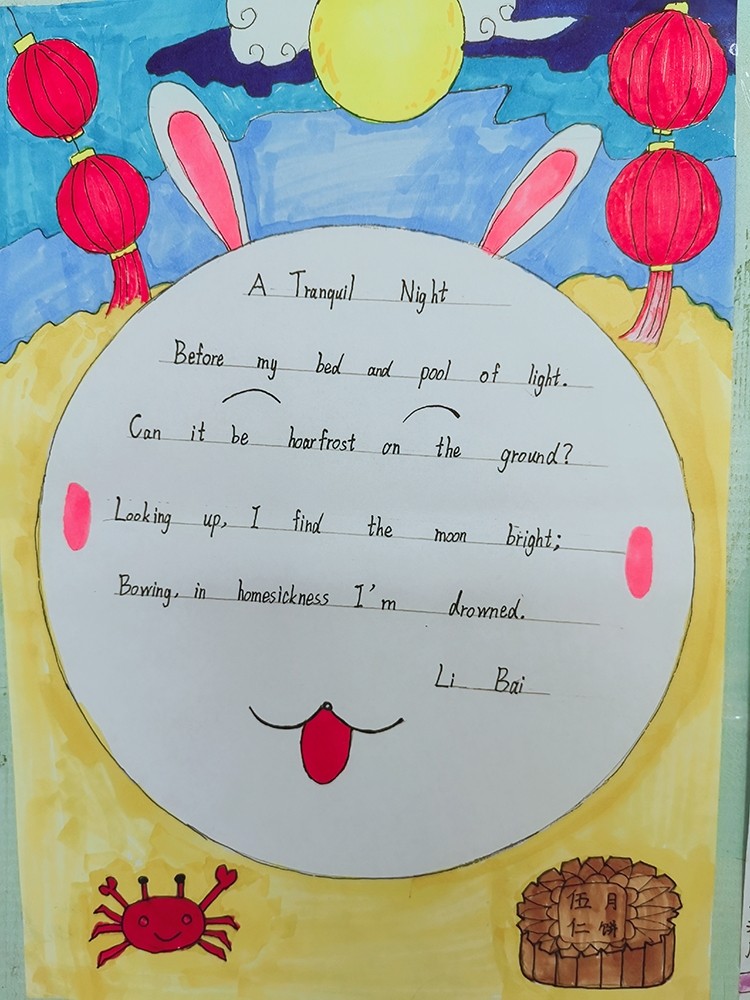 A Tranquil Night
Before my bed and pool of light.
Can it be hoarfrost on the ground?
Looking up, I find the moon bright;
Bowing, in homesickness I'm drowned.
Li Bai
伍仁
月饼